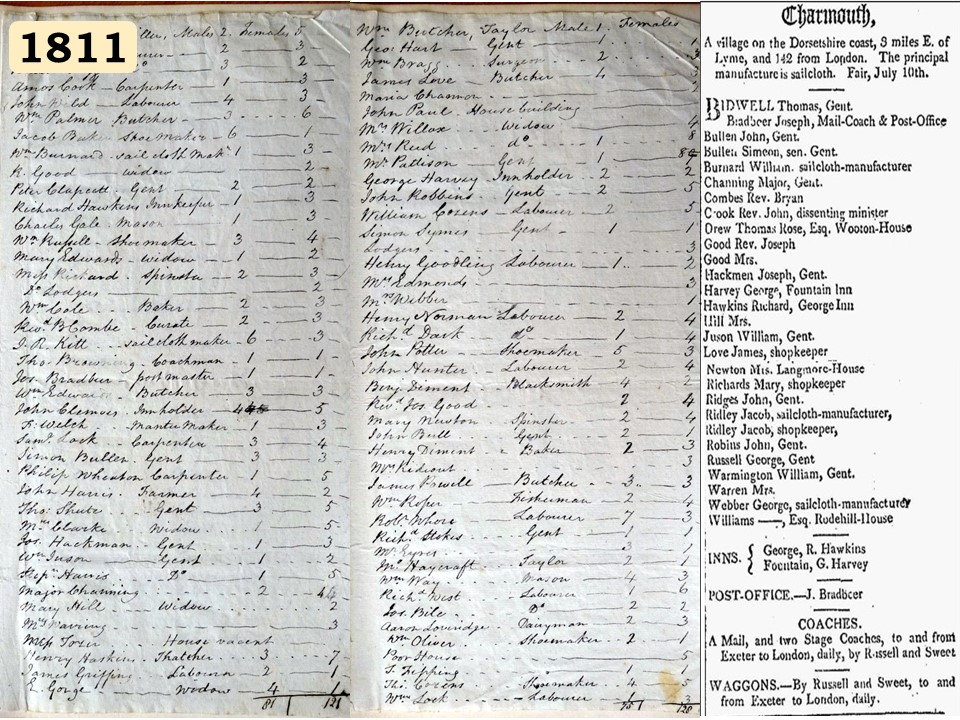 1811
Males 2. Females
2 3
3 2
Amos Cook Carpenter 1 3
John Wild Labourer 4 3
Wm Palmer Butcher 3 6
Jacob Shoemaker 6 1
Wm Burnard sail cloth Mak 1 3
R. Good widow 2
Peter Clapcott Gent 2 2
Richard Hawkins Innkeeper 1 3
Charles Gale Mason 1 3
Wm Russell Shoemaker 3 4
Mary Edwards widow 1 2
Miss Richard Spinster 2 3
Do Lodgers 2
Wm Cole Baker 2 3
Revd B Combe Curate 2 3
J. R. Kitt sail cloth maker 6 3
Thos Browning Coachman 1 1
Jos. Bradbeer postmaster 1 1
Wm Edwards Butcher 3 3
John Clemoes Innholder 5
F. Welch Mantu Maker 1 3
Saml Cock Carpenter 3 4
Simon Bullen Gent 3 3
Philip Wheaton Carpenter 1 5
John Harris Farmer 4 2
Thos Shute Gent 3 5
Mrs Clarke Widow 1 5
Jos. Hackman Gent 1 3
Wm Juson Gent 1 2
Harris Do 1 5
Major Channing 2
Mary Hill Widow 2
Mrs Waring 3
Miss Tozer House vacent
Henry Haskins Thatcher 3 7
James Griffing Labourer 2 1
E. Gorge Widow 4 1
81 121
Wm Butcher, Taylor Male 1, Females
Geo. Hart Gent 1 1
Wm Bragg Surgeon 2 3
James Love Butcher 4 3
Maria Channon 2
John Paul House building
Mrs Willox widow 4
Mrs Reid do 1 8
Mr Pattison Gent 1 1
George Harvey Innholder 2 2
John Robbins Gent 2 5
William Cozens Labourer 2 5
Simon Symes Gent 1 1
Lodgers 3
Henry Goodling Labourer 1 2
Mrs Edmonds 3
Mrs Webber 1
Henry Norman Labourer 2 4
Richd Dark do 1 4
John Potter Shoemaker 5 3
John Hunter Labourer 2 4
Benj. Diment Blacksmith 4 2
Revd Jos Good 2 4
Mary Newton Spinster 2 4
John Bull Gent 2 1
Henry Diment Baker 2 3
Wm Rideout 3
James Powell Butcher 3 3
Wm Roper Fisherman 2 4
Robt Whore Labourer 7 3
Richd Stokes Gent 1
Mr Eyres 3 1
Mr Haycraft Taylor 2 1
Wm Way Mason 4 3
Richd West Labourer 1 6
Jos. Do 2 2
Aaron Loveridge Dairyman 2 3
Wm Oliver Shoemaker 2 1
Poor House 5
F. Fipping 1
Thos Cozens Shoemaker 4 5
Wm Lock Labourer 1 3
128
Charmouth,
A village on the Dorsetshire coast, 3 miles E. of
Lyme, and 142 from London. The principal
manufacture is sailcloth. Fair, July 10th.
BIDWELL Thomas, Gent.
Bradbeer Joseph, Mail-Coach & Post-Office
Bullen John, Gent.
Bullen Simeon, sen. Gent.
Burnard William. sailcloth-manufacturer
Channing Major, Gent.
Combes Rev. Bryan
Crook Rev. John, dissenting minister
Drew Thomas Rose, Esq. Wooton-House
Good Rev. Joseph
Good Mrs.
Hackmen Joseph, Gent.
Harvey George, Fountain Inn
Hawkins Richard, George Inn
Hill Mrs.
Juson William, Gent.
Love James, shopkeeper
Newton Mis. Langmore-House
Richards Mary, shopkeeper
Ridges John, Gent.
Ridley Jacob, sailcloth-manufacturer,
Ridley Jacob, shopkeeper,
Robins John, Gent.
Russell George, Gent
Warmington William, Gent.
Warren Mrs.
Webber George, sailcloth-manufacturer
Williams ——, Esq. Rodehill-House
INNS. { George, R. Hawkins
Fountain, G. Harvey
POST-OFFICE.—J. Bradbeer
COACHES.
A Mail, and two Stage Coaches, to and from
Exeter to London, daily, by Russell and Sweet
WAGGONS.—By Russell and Sweet, to and
from Exeter to London, daily.